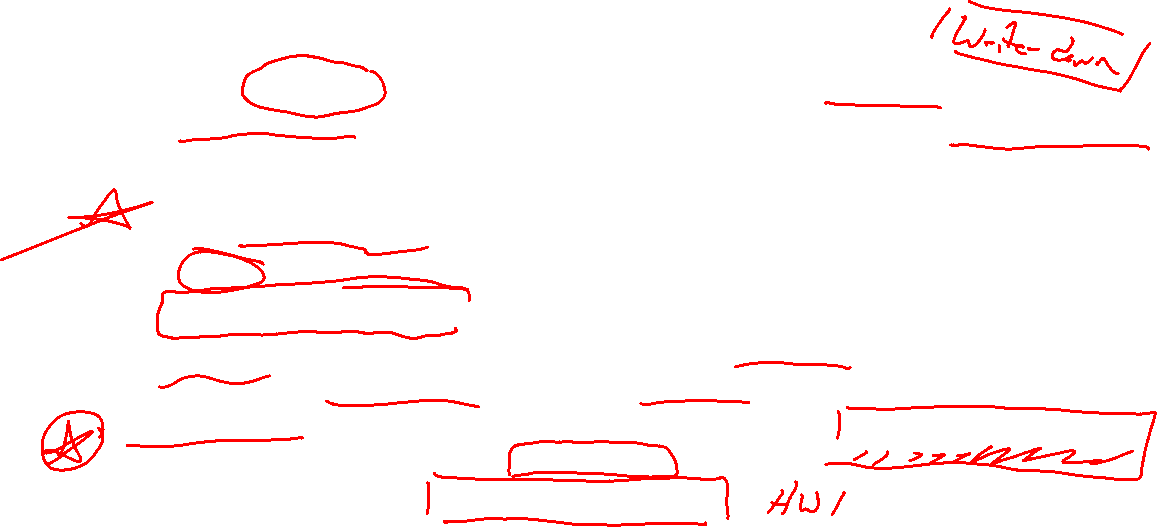 Write down
HW1